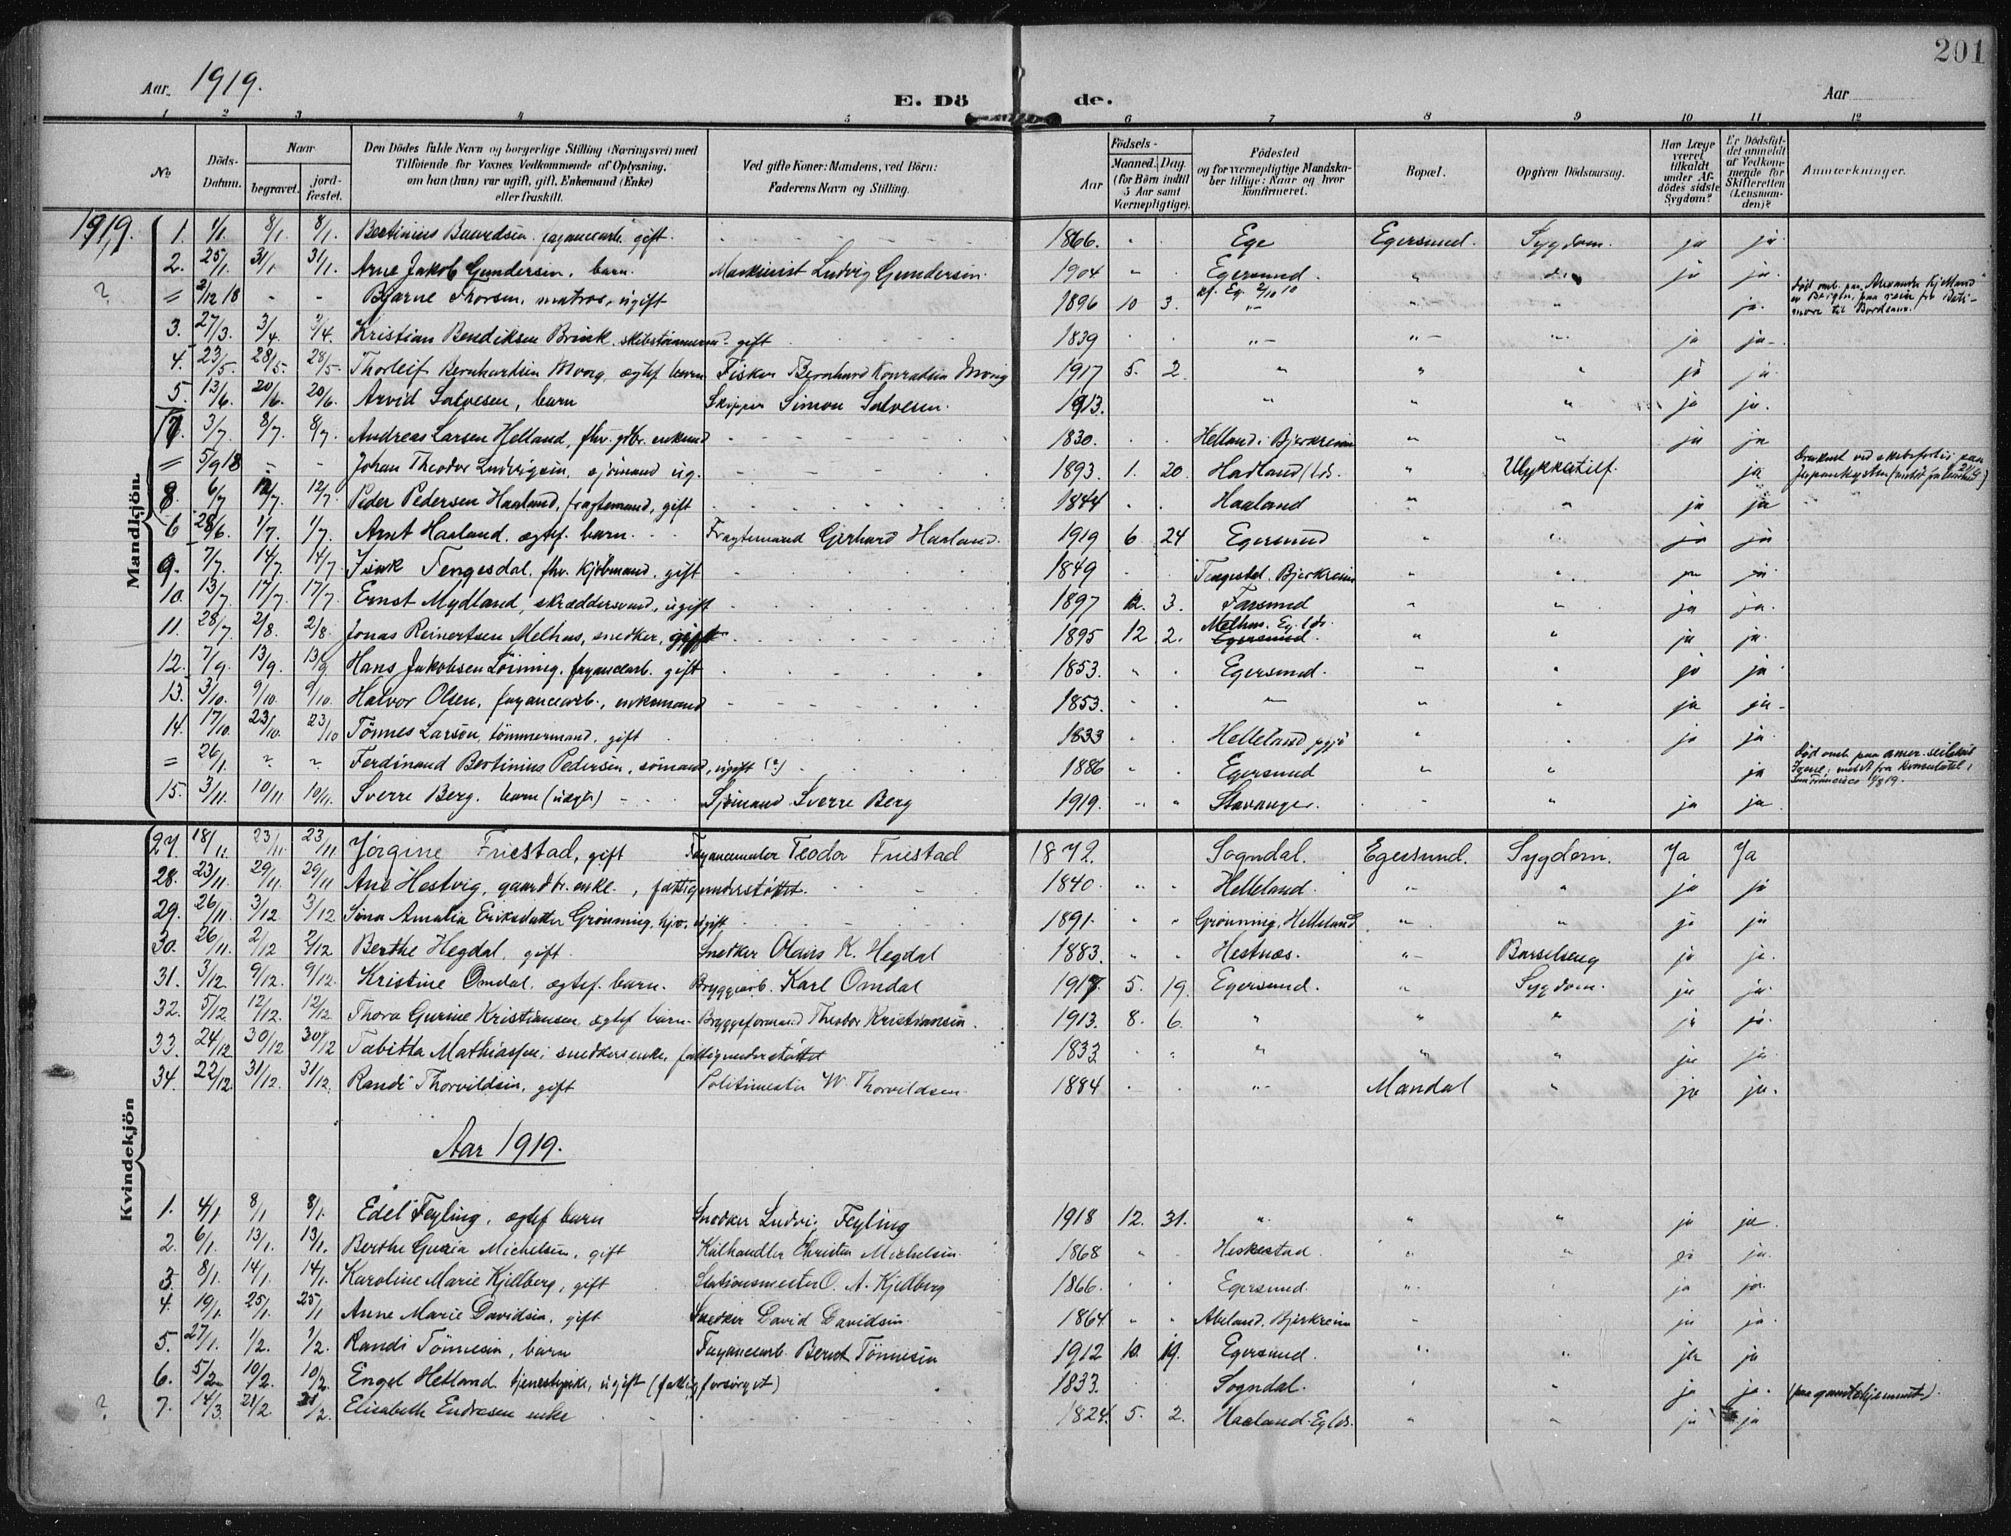 201
Aar 1919.
E. Dö de.
Aar
1 2 3 4 5 6 7 8 9 10 11 12
No
Döds-Datum.
Naar
begravet.
jord-fæstet.
Den Dödes fulde Navn og borgerlige Stilling (Næringsvei) med
Tilföiende for Voxnes Vedkommende af Oplysning,
om han (hun) var ugift, gift, Enkemand (Enke)
eller fraskilt.
Ved gifte Koner: Mandens, ved Börn:
Faderens Navn og Stilling.
Födsels-
Aar
Maaned. Dag.
(for Börn indtil
5 Aar samt
Værnepligtige).
Födested
og for værnepligtige Mandska-
ber tillige: Naar og hvor
konfirmeret.
Bopæl.
Opgiven Dödsaarsag.
Har Læge
været
tilkaldt
under Af-
dödes sidste
Sygdom?
Er Dödsfal-
det anmeldt
af Vedkom-
mende for
Skifteretten
(Lensman-
den)?
Anmærkninger.
Mandkjön.
1919. 1. 1/1. 8/1. 8/1. Bertinius Baardsen fayancearb. gift. 1866. Ege Egersund. Sygdom. ja ja.
2. 25/1. 31/1. 31/1. Arne Jakob Gundersen, barn. Maskinist Ludvig Gundersen. 1904 " Egersund. " ja ja.
? = 2/12 18 - - Bjarne Thorsen, matros, ugift 1896 10 3. kf. Eg. 2/10 10 " " ja. Död omb. paa Alexander Kjelland av Bergen, paa reise fra til Bordeaux.
3. 27/3. 3/4. 3/4. Kristian Bendiksen Brink, skibstömmerm. gift 1839 " " " ja ja
4. 23/5. 28/5. 28/5. Thorleif Bernhardsen Mong, ægtef barn Fisker Bernhard Konradsen Mong 1917 5. 2. " " " ja ja
5. 13/6. 20/6. 20/6. Arvid Salvesen, barn Skipper Simon Salvesen. 1913. " " " ja ja.
7. 3/7. 8/7. 8/7. Andreas Larsen Helland, fhv. gdbr. enkem 1830. Helland i Bjerkreim " " ja ja
= 5/9 18 - - Johan Theodor Ludvigsen, sjömand ug. 1893. 1. 20. Hadland / Lds. " Ulykkestilf. ja Druknet ved skibsforlis paa Japankysten
8. 6/7 12/7. 12/7. Peder Pedersen Haaland, fragtemand, gift 1844 Haaland " " ja ja
6 28/6. 1/7. 1/7. Arnt Haaland, ægtef. barn. Fragtemand Gerhard Haaland. 1919 6 24 Egersund " " ja ja
9. 7/7. 14/7. 14/7. Isak Tengesdal, fhv. kjöbmand, gift 1849 Tengesdal. Bjerkreim " " ja ja
10. 13/7. 17/7. 17/7. Ernst Mydland, skræddersvend, ugift 1897 12. 3. Farsund " " ja ja.
11. 28/7. 2/8. 2/8. Jonas Reinertsen Melhus, snedker, gift 1895 12 2. Melhus. Eg. lds. Egersund. " " ja ja.
12. 7/9. 13/9. 13/9. Hans Jakobsen Löining, fayancearb. gift 1853. Egersund. " " ja ja
13. 3/10. 9/10. 9/10. Halvor Olsen, fayancearb., enkemand 1853. " " " ja ja
14. 17/10. 23/10. 23/10 Tönnes Larsen, tömmermand, gift 1833 Helleland pgjd " " ja ja.
= 26/1. ? ? Ferdinand Bertinius Pedersen, sömand, ugift (?) 1886 Egersund " " ja Död omb. paa amer. seilskib meldt fra Konsulatet i San Francisco 4/8 19.
15. 3/11. 10/11 10/11. Sverre Berg. barn (uægte) Sjömand Sverre Berg 1919. Stavanger. " " ja ja
Kvindekjön
27. 18/11. 23/11. 23/11 Jörgine Friestad, gift Fayancemaler Teodor Friestad 1872. Sogndal. Egersund. Sygdom. Ja Ja
28. 23/11. 29/11. 29/11 Ane Hestvig, gaardbr. enke, fattigunderstöttet. 1840 Helleland. " " ja ja
29. 26/11. 3/12 3/12. Sina Amalia Eriksdatter Grönning, ugift 1891. Grönning, Helleland " " ja ja
30. 26/11. 2/12 2/12 Berthe Hegdal, gift. Snedker Olaus K. Hegdal 1883. Hestnæs. " Barselseng ja ja.
31. 3/12 9/12. 9/12. Kristine Omdal, ægtef. barn. Bryggearb. Karl Omdal 1917. 5. 19. Egersund. " Sygdom. ja ja.
32. 5/12 12/12. 12/12. Thora Gurine Kristiansen, ægtef barn. Bryggeformand Theodor Kristiansen. 1913. 8. 6. " " " ja ja.
33. 24/12 30/12 30/12 Tabitha Mathiassen, snedkersenke, fattigunderstöttet 1833 " " " ja ja.
34. 22/12 31/12. 31/12. Randi Thorvildsen, gift Politimester W. Thorvildsen 1884 " Mandal " ja ja.
Aar 1919.
1. 4/1. 8/1 8/1. Edel Feyling, ægtef barn Snedker Ludvig Feyling 1918 12. 31. " " " ja ja
2. 6/1. 13/1. 13/1. Berthe Guria Michelsen, gift Kulhandler Christen Michelsen. 1868 Heskestad. " " ja ja.
3. 8/1. 14/1. 14/1. Karoline Marie Kjellberg, gift Stationsmester O. A. Kjellberg 1866. Egersund. " " ja ja.
4. 19/1. 25/1. 25/1 Anne Marie Davidsen, gift Snedker David Davidsen. 1864. Abeland. Bjerkreim " " ja ja.
5. 27/1. 1/2. 1/2. Randi Tönnesen, barn Fayancearb. Berent Tönnesen 1912 10. 19. Egersund. " " ja ja
6. 5/2 10/2. 10/2. Engel Hetland tjenestepike, ugift (fattigforsörget) 1833. Sogndal. " " ja ja. (paa gamlehjemmet).
? 7. 14/3. 21/2 21/2. Elisabeth Endresen enke 1824. 5. 2. Haaland. Eg lds. " " ja ja